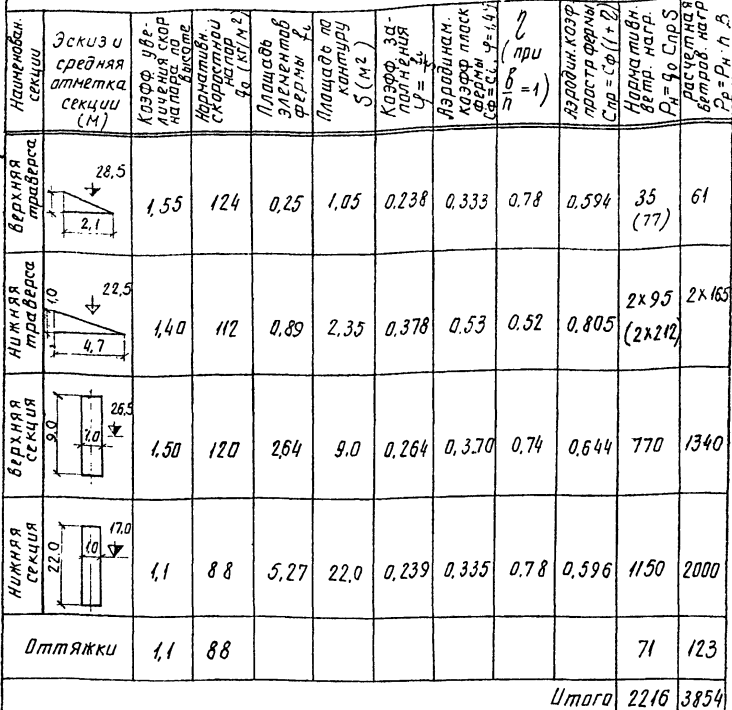 Наименован. секции
Эскиз и средняя отметка секции (М)
Коэфф. увеличения скор напора по высоте
Нормативн. скоростной напор q₀ (кг/м²)
Площадь элементов фермы fi
Площадь по контуру S (м²)
Коэфф. заполнения φ =
Аэродинам. коэфф плоск фермы φ=1,4
Сф=Сi
η (при в/h = 1)
Аэродин. коэф простр фермы Спр = Сф(1+η)
Нормативн. ветр. нагр. Рн = q₀ Спр S
Расчетная ветров. нагр. Рр = Рн · n · β
Верхняя траверса
28,5
2,1
1,55 124 0,25 1,05 0,238 0,333 0,78 0,594 35 (77) 61
Нижняя траверса
1,0
22,5
4,7
1,40 112 0,89 2,35 0,378 0,53 0,52 0,805 2×95 (2×212) 2×165
Верхняя секция
9,0
1,0
26,5
1,50 120 2,64 9,0 0,264 0,370 0,74 0,644 770 1340
Нижняя секция
22,0
1,0
17,0
1,1 88 5,27 22,0 0,239 0,335 0,78 0,596 1150 2000
Оттяжки 1,1 88 71 123
Итого 2216 3854